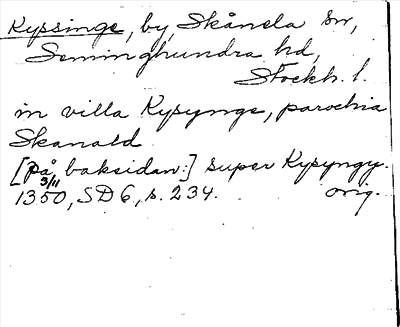 Kyssinge, by, Skånela sn,
Seminghundra hd,
Stockh. l.
in villa Kysynge, parochia
Skanald
[På baksidan:] super Kysyngy.
3/11
1350, SD 6, s. 234. orig.